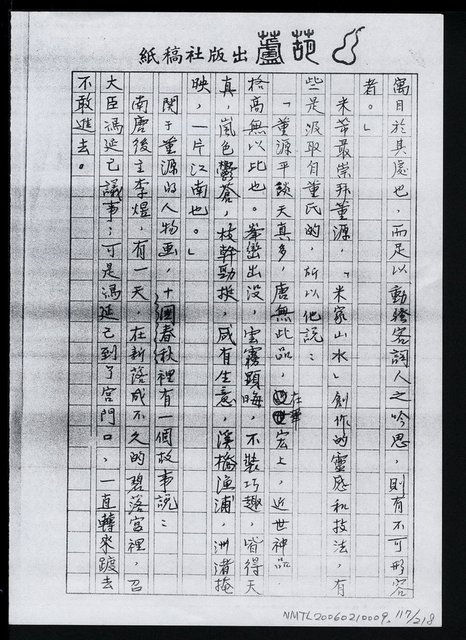 紙稿社版出蘆葫
寓目於其處也，而足以動騷客詞人之吟思，則有不可形容
者。」
米芾最崇拜董源，「米家山水」創作的靈感和技法，有
些是汲取自董氏的，所以他説：
「董源平淡天真多，唐無此品，在畢宏上，近世神品
格高無以比也。峯巒出没，雲霧顯晦，不裝巧趣，皆得天
真，嵐色鬱蒼，枝幹勁挺，咸有生意，溪橋漁浦，洲渚掩
映，一片江南也。」
関于董源的人物画，十國春秋裡有一個故事説：
南唐後主李煜，有一天，在新落成不久的碧落宮裡，召
大臣馮延己議事；可是馮延己到了宮門口，一直轉來踱去
不敢進去。
NMTL20060210009.117/218